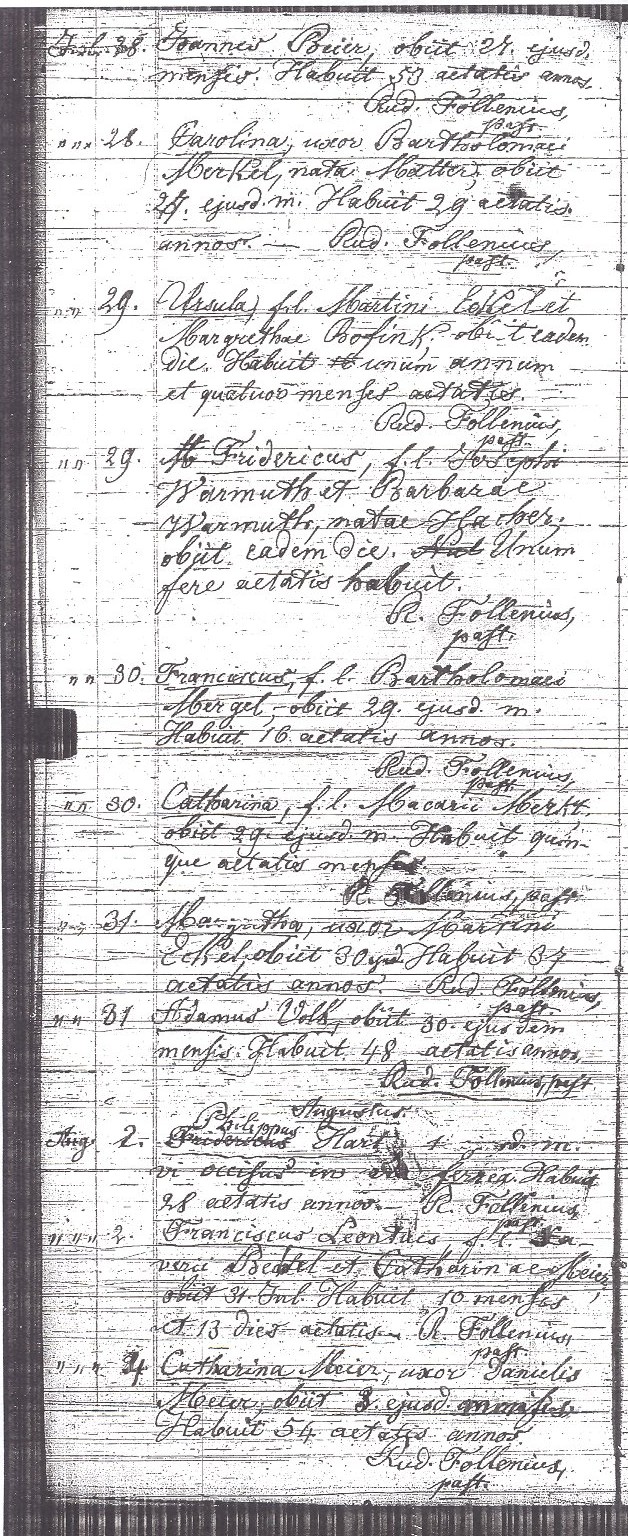 Jul. 28. Joannes Beier, obiit 27. ejusd.
mensis. Habuit 53 aetatis annos.
Rud. Follenius,
past.
" " " 28. Carolina, uxor Bartholomaei
Merkel, nata Matter, obiit
27. ejusd. m. Habuit 29 aetatis
annos. — Rud. Follenius,
past.
" " 29. Ursula, f. l. Martini Eckel et
Margrethae Bofink, obiit eadem
die. Habuit unum annum
et quatuor menses aetatis.
Rud. Follenius,
past.
" " 29. Fridericus, f. l. Josephi
Warmuth et Barbarae
Warmuth, natae Hacher,
obiit eadem die. Unum
fere aetatis habuit.
R. Follenius,
past.
" " 30. Franciscus, f. l. Bartholomaei
Mergel, obiit 29. ejusd. m.
Habuit 16 aetatis annos.
Rud. Follenius,
past.
" " 30. Catharina, f. l. Macarii Merkt,
obiit 29. ejusd. m. Habuit quin-
que aetatis menses
R. Follenius, past.
" " 31. Margretha, uxor Martini
Eckel, obiit 30 Habuit 37
aetatis annos. Rud. Follenius,
past.
" " 31 Adamus Volk, obiit 30. ejusdem
mensis. Habuit 48 aetatis annos,
Rud. Follenius, past
Augustus.
Philippus
Aug. 2. Fridericus m.
vi occisus in ferrea. Habuit
28 aetatis annos. — R. Follenius,
past.
" " " 2. Franciscus Leontius, f. l. Xa-
verii Bedel et Catharinae Meier,
obiit 31 Jul. Habuit 10 menses
et 13 dies aetatis — R. Follenius,
past.
" " " 4 Catharina Meier, uxor Danielis
Meier, obiit 3. ejusd. mensis.
Habuit 54 aetatis annos
Rud. Follenius,
past.